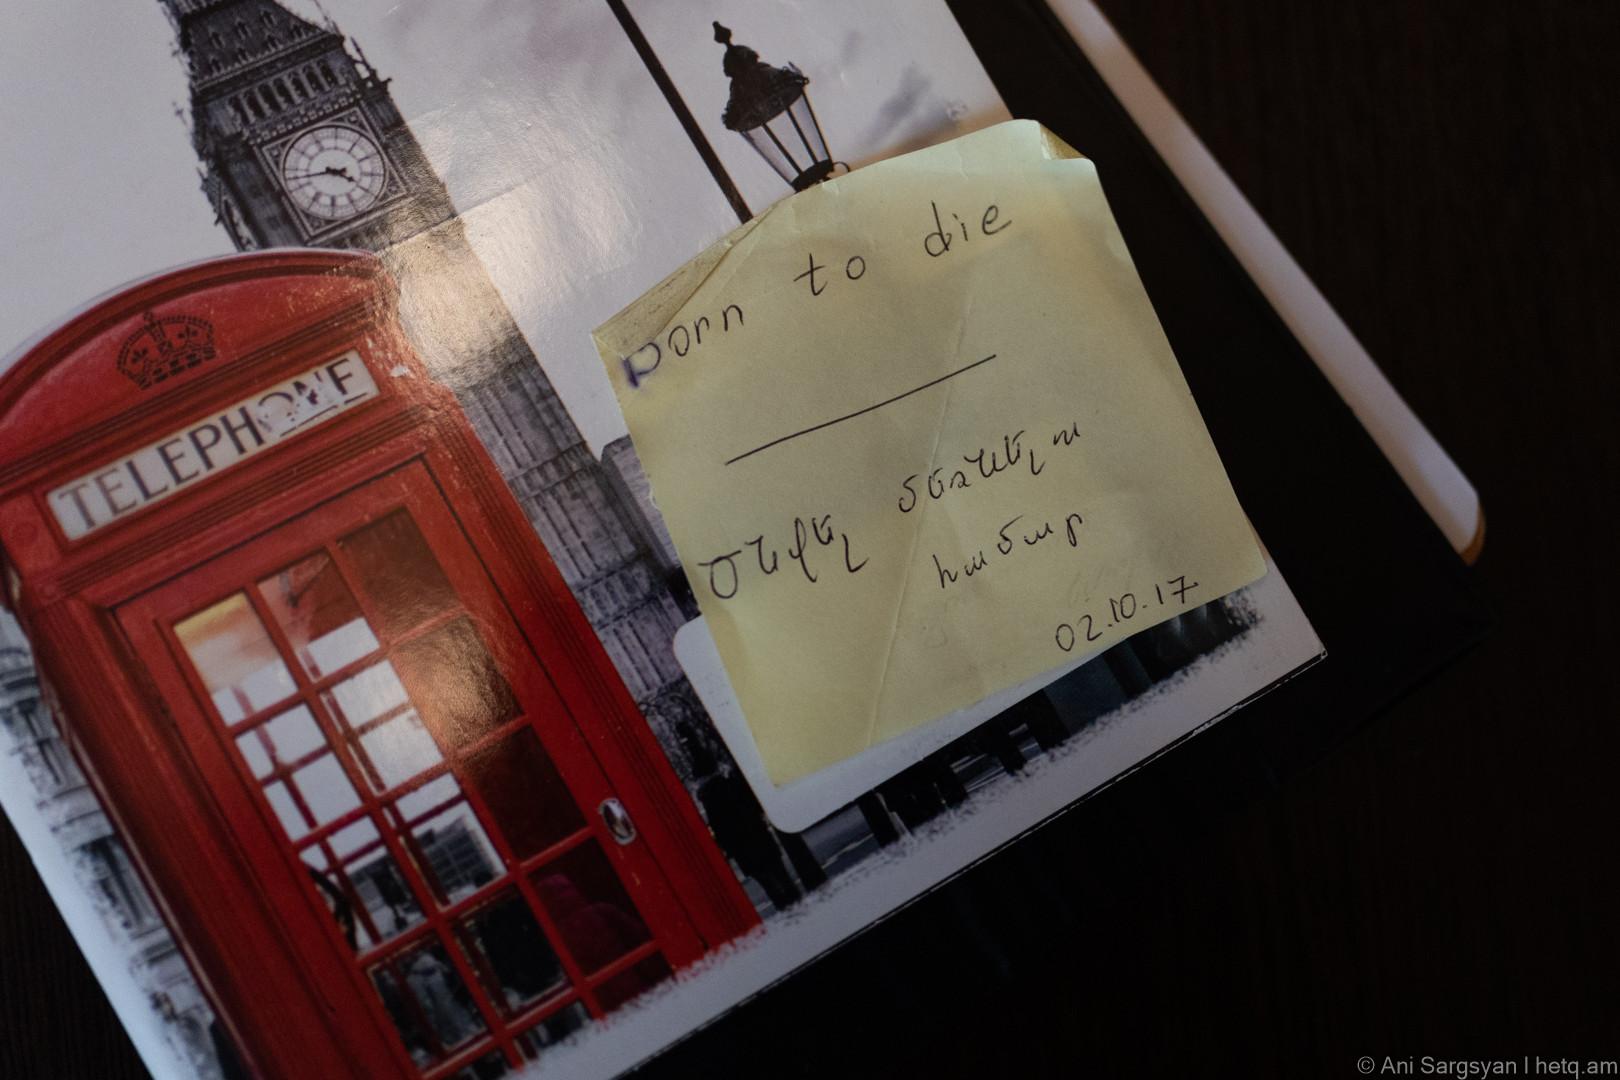 TELEPHONE
born to die
Ծնվել մեռնելու
համար
02.10.17
© Ani Sargsyan | hetq.am